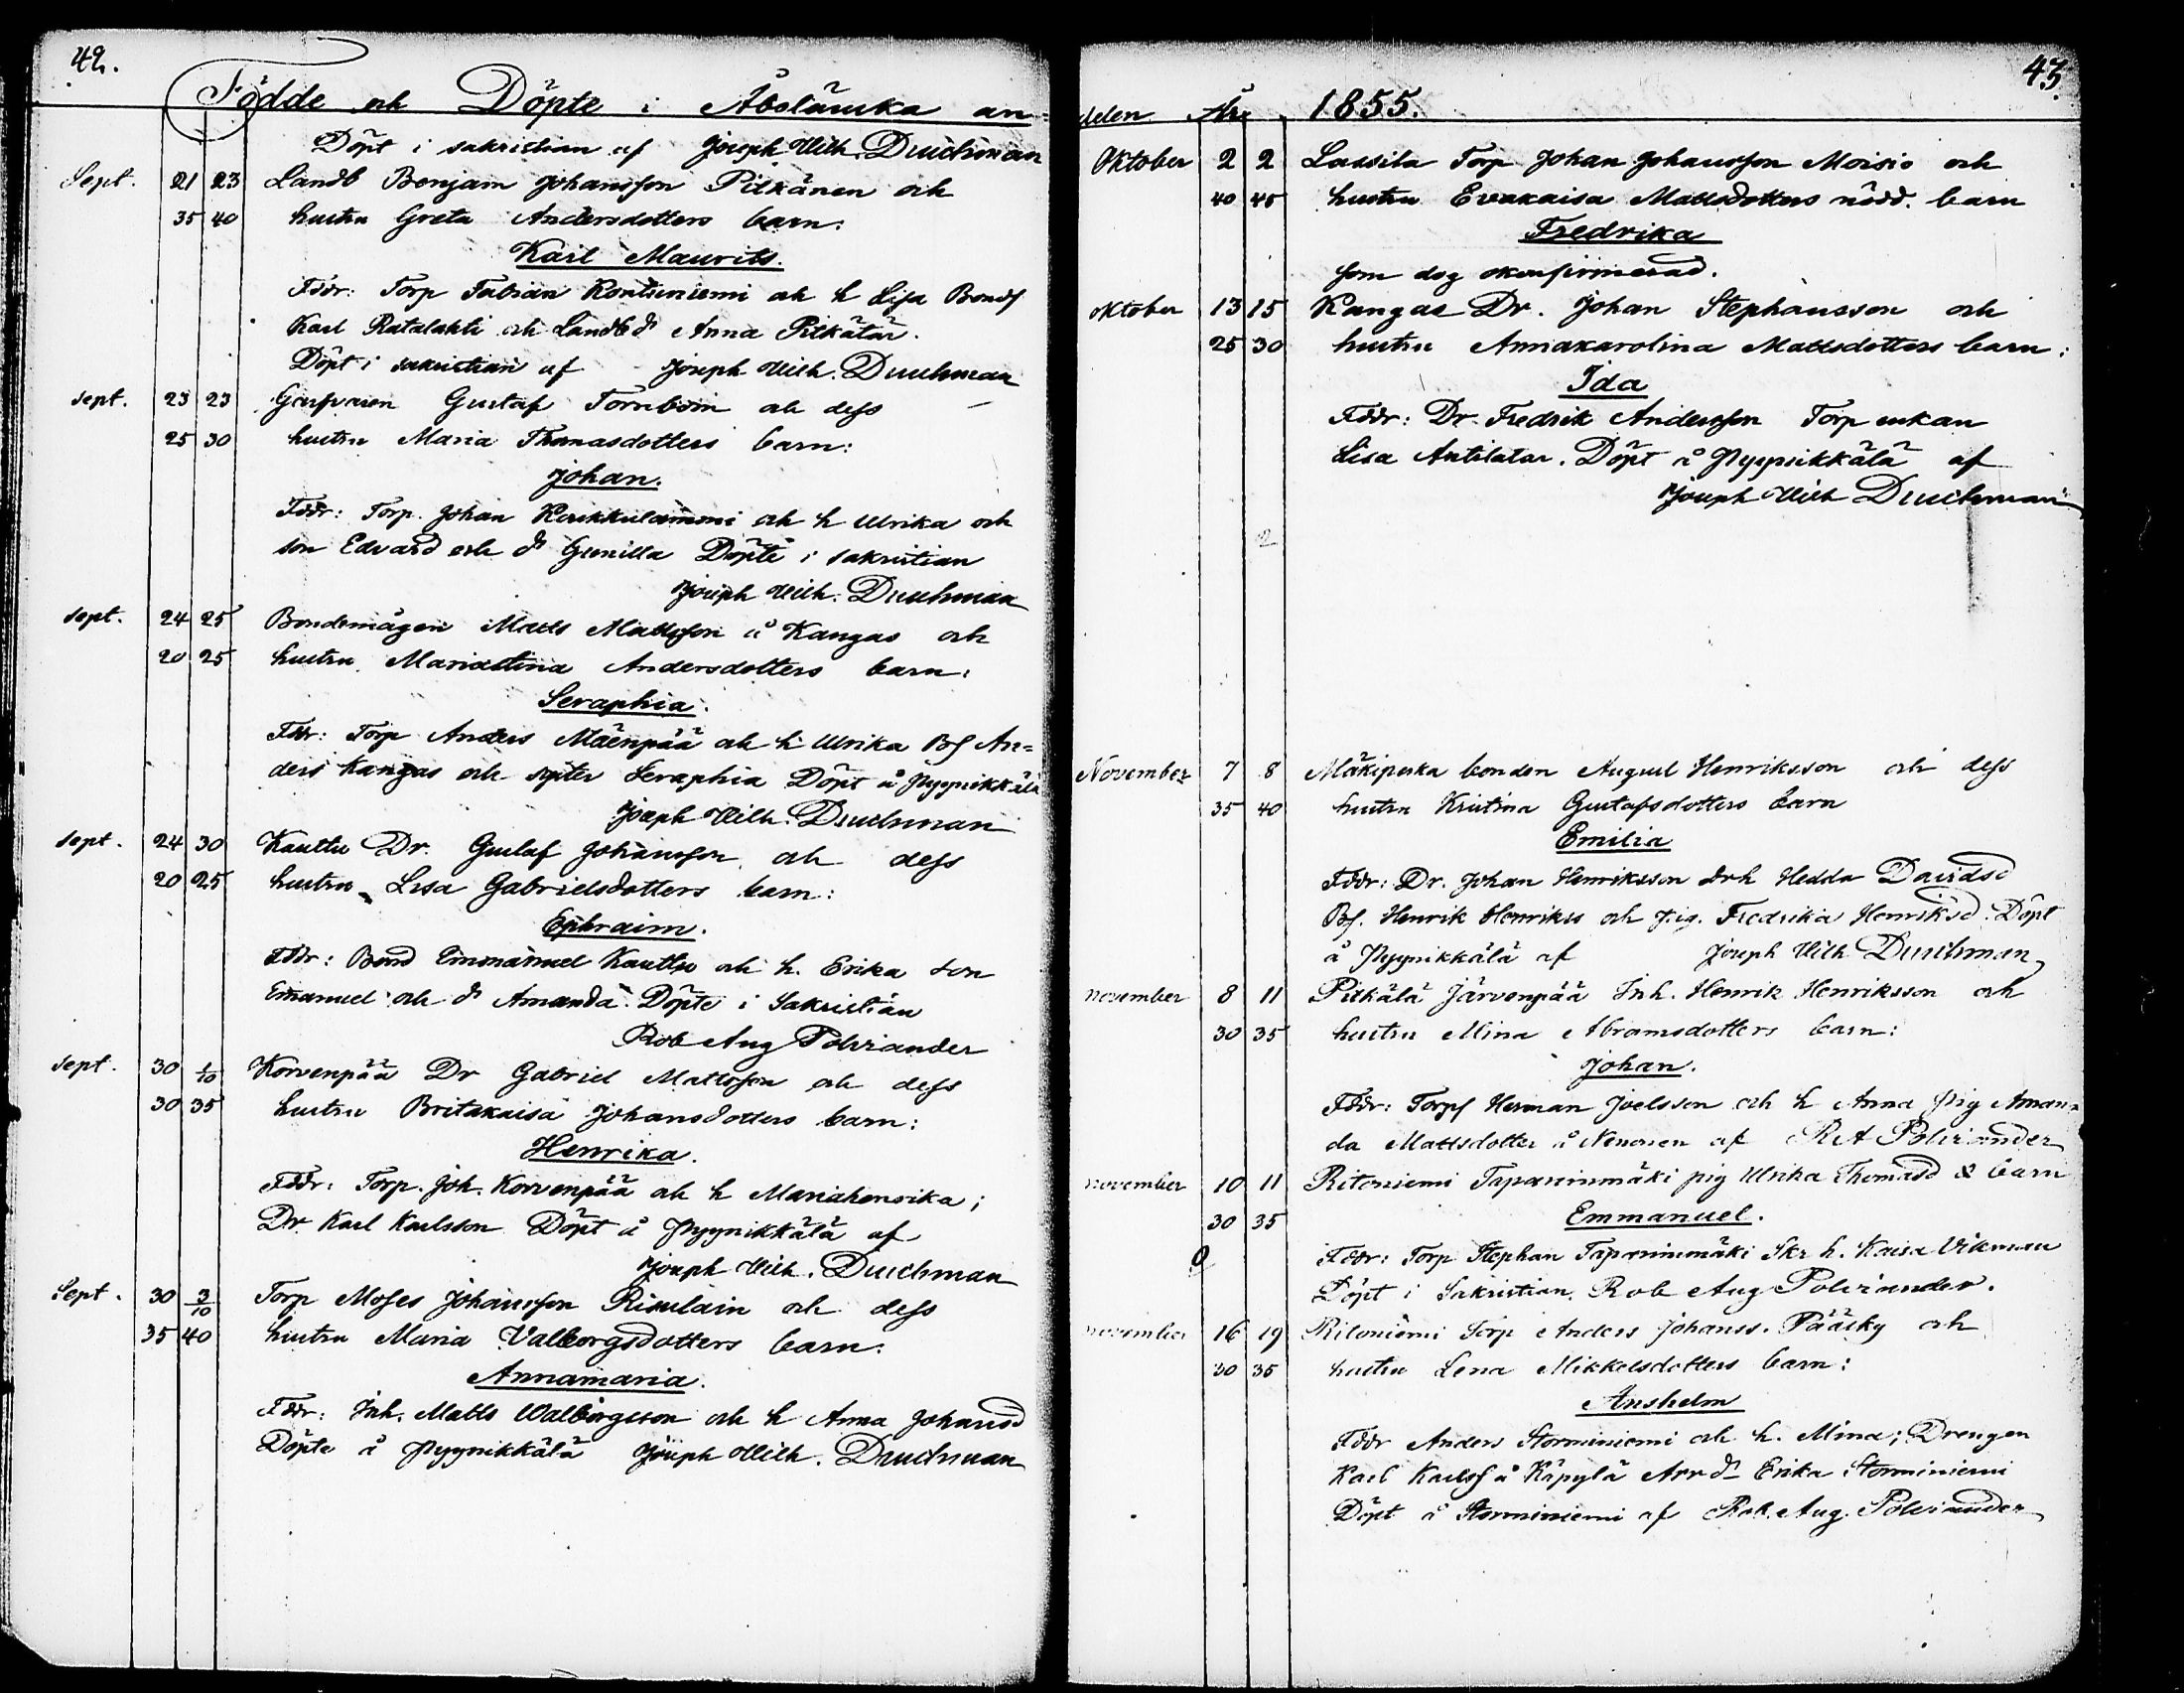 42.
Födde och Döpte i Åbolänska an-
Döpt i sakristian af Joseph Wilh. Druchman
Sept. 21 23 Landb Benjam Johansson Pitkänen och
35 40 hustru Greta Andersdotters barn:
Karl Maurits.
Fddr: Torp Fabian Kontuniemi och h Lisa Bonds
Karl Ratalahti och Landb dr Anna Pitkätar.
Döpt i sakristian af Joseph Wilh. Druchman
sept. 23 23 Gustaf Törnbom och dess
25 30 hustru Maria Thomasdotters barn:
Johan.
Fddr: Torp. Johan Kuukkulammi och h Ulrika och
son Edvard och dr Gunilla Döpte i sakristian
Joseph Wilh. Druchman
sept. 24 25 Bondemågen Matts Mattsson å Kangas och
20 25 hustru Mariastina Andersdotters barn:
Seraphia.
Fddr: Torp Anders Mäenpää och h Ulrika Bs An=
ders Kangas och syster Seraphia Döpt å Pyynikkälä
Joseph Wilh. Druchman
sept. 24 30 Kauttu Dr. Gustaf Johansson och dess
20 25 hustru Lisa Gabrielsdotters barn:
Ephraim.
Fddr: Bond Emmanuel Kauttu och h. Erika son
Emanuel och dr Amanda. Döpte i Sakristian
Rob Aug Polviander
sept. 30 1/10 Korvenpää Dr Gabriel Mattsson och dess
30 35 hustru Britakaisa Johansdotters barn:
Henrika.
Fddr: Torp. Joh. Korvenpää och h Mariahenrika;
Dr Karl Karlsson Döpt å Pyynikkälä af
Joseph Wilh. Druchman
Sept. 30 3/10 Torp Moses Johansson Risulain och dess
35 40 hustru Maria Valborgsdotters barn:
Annamaria.
Fddr: Inh. Matts Walborgsson och h Anna Johansd
Döpte å Pyynikkälä Joseph Wilh. Druchman
43.
delen År 1855.
Oktober 2 2 Lassila Torp Johan Johansson Moisio och
40 45 hustru Evakaisa Mattsdotters nödd. barn
Fredrika
som dog okonfirmerad.
oktober 13 15 Kangas Dr. Johan Stephansson och
25 30 hustru Annakarolina Mattsdotters barn:
Ida
Fddr: Dr. Fredrik Andersson Torp enkan
Lisa Antilatar. Döpt å Pyynikkälä af
Joseph Wilh Druchman
2
November 7 8 Mäkipeska bonden August Henriksson och dess
35 40 hustru Kristina Gustafsdotters barn
Emilia
Fddr: Dr. Johan Henriksson drh Hedda Davidsd
Bs. Henrik Henrikss och pig. Fredrika Henriksd. Döpt
å Pyynikkälä af Joseph Wilh Druchman
november 8 11 Pitkälä Järvenpää Inh. Henrik Henriksson och
30 35 hustru Mina Abramsdotters barn:
Johan.
Fddr: Torps Herman Joelsson och h Anna pig Aman=
da Mattsdotter å Nenonen af R A Polviander
november 10 11 Ritoniemi Tapaninmäki pig Ulrika Thomasd o barn
30 35 Emmanuel.
Fddr: Torp Stephan Tapaninmäki Skr h. Kaisa Vikman
Döpt i Sakristian. Rob Aug Polviander.
november 16 19 Ritoniemi Torp Anders Johanss. Pääsky och
30 35 hustru Lena Mikkelsdotters barn:
Anshelm
Fddr Anders Storminiemi och h. Mina; Drengen
Karl Karlss å Käpylä Arr dr Erika Storminiemi
Döpt å Storminiemi af Rob. Aug. Polviander